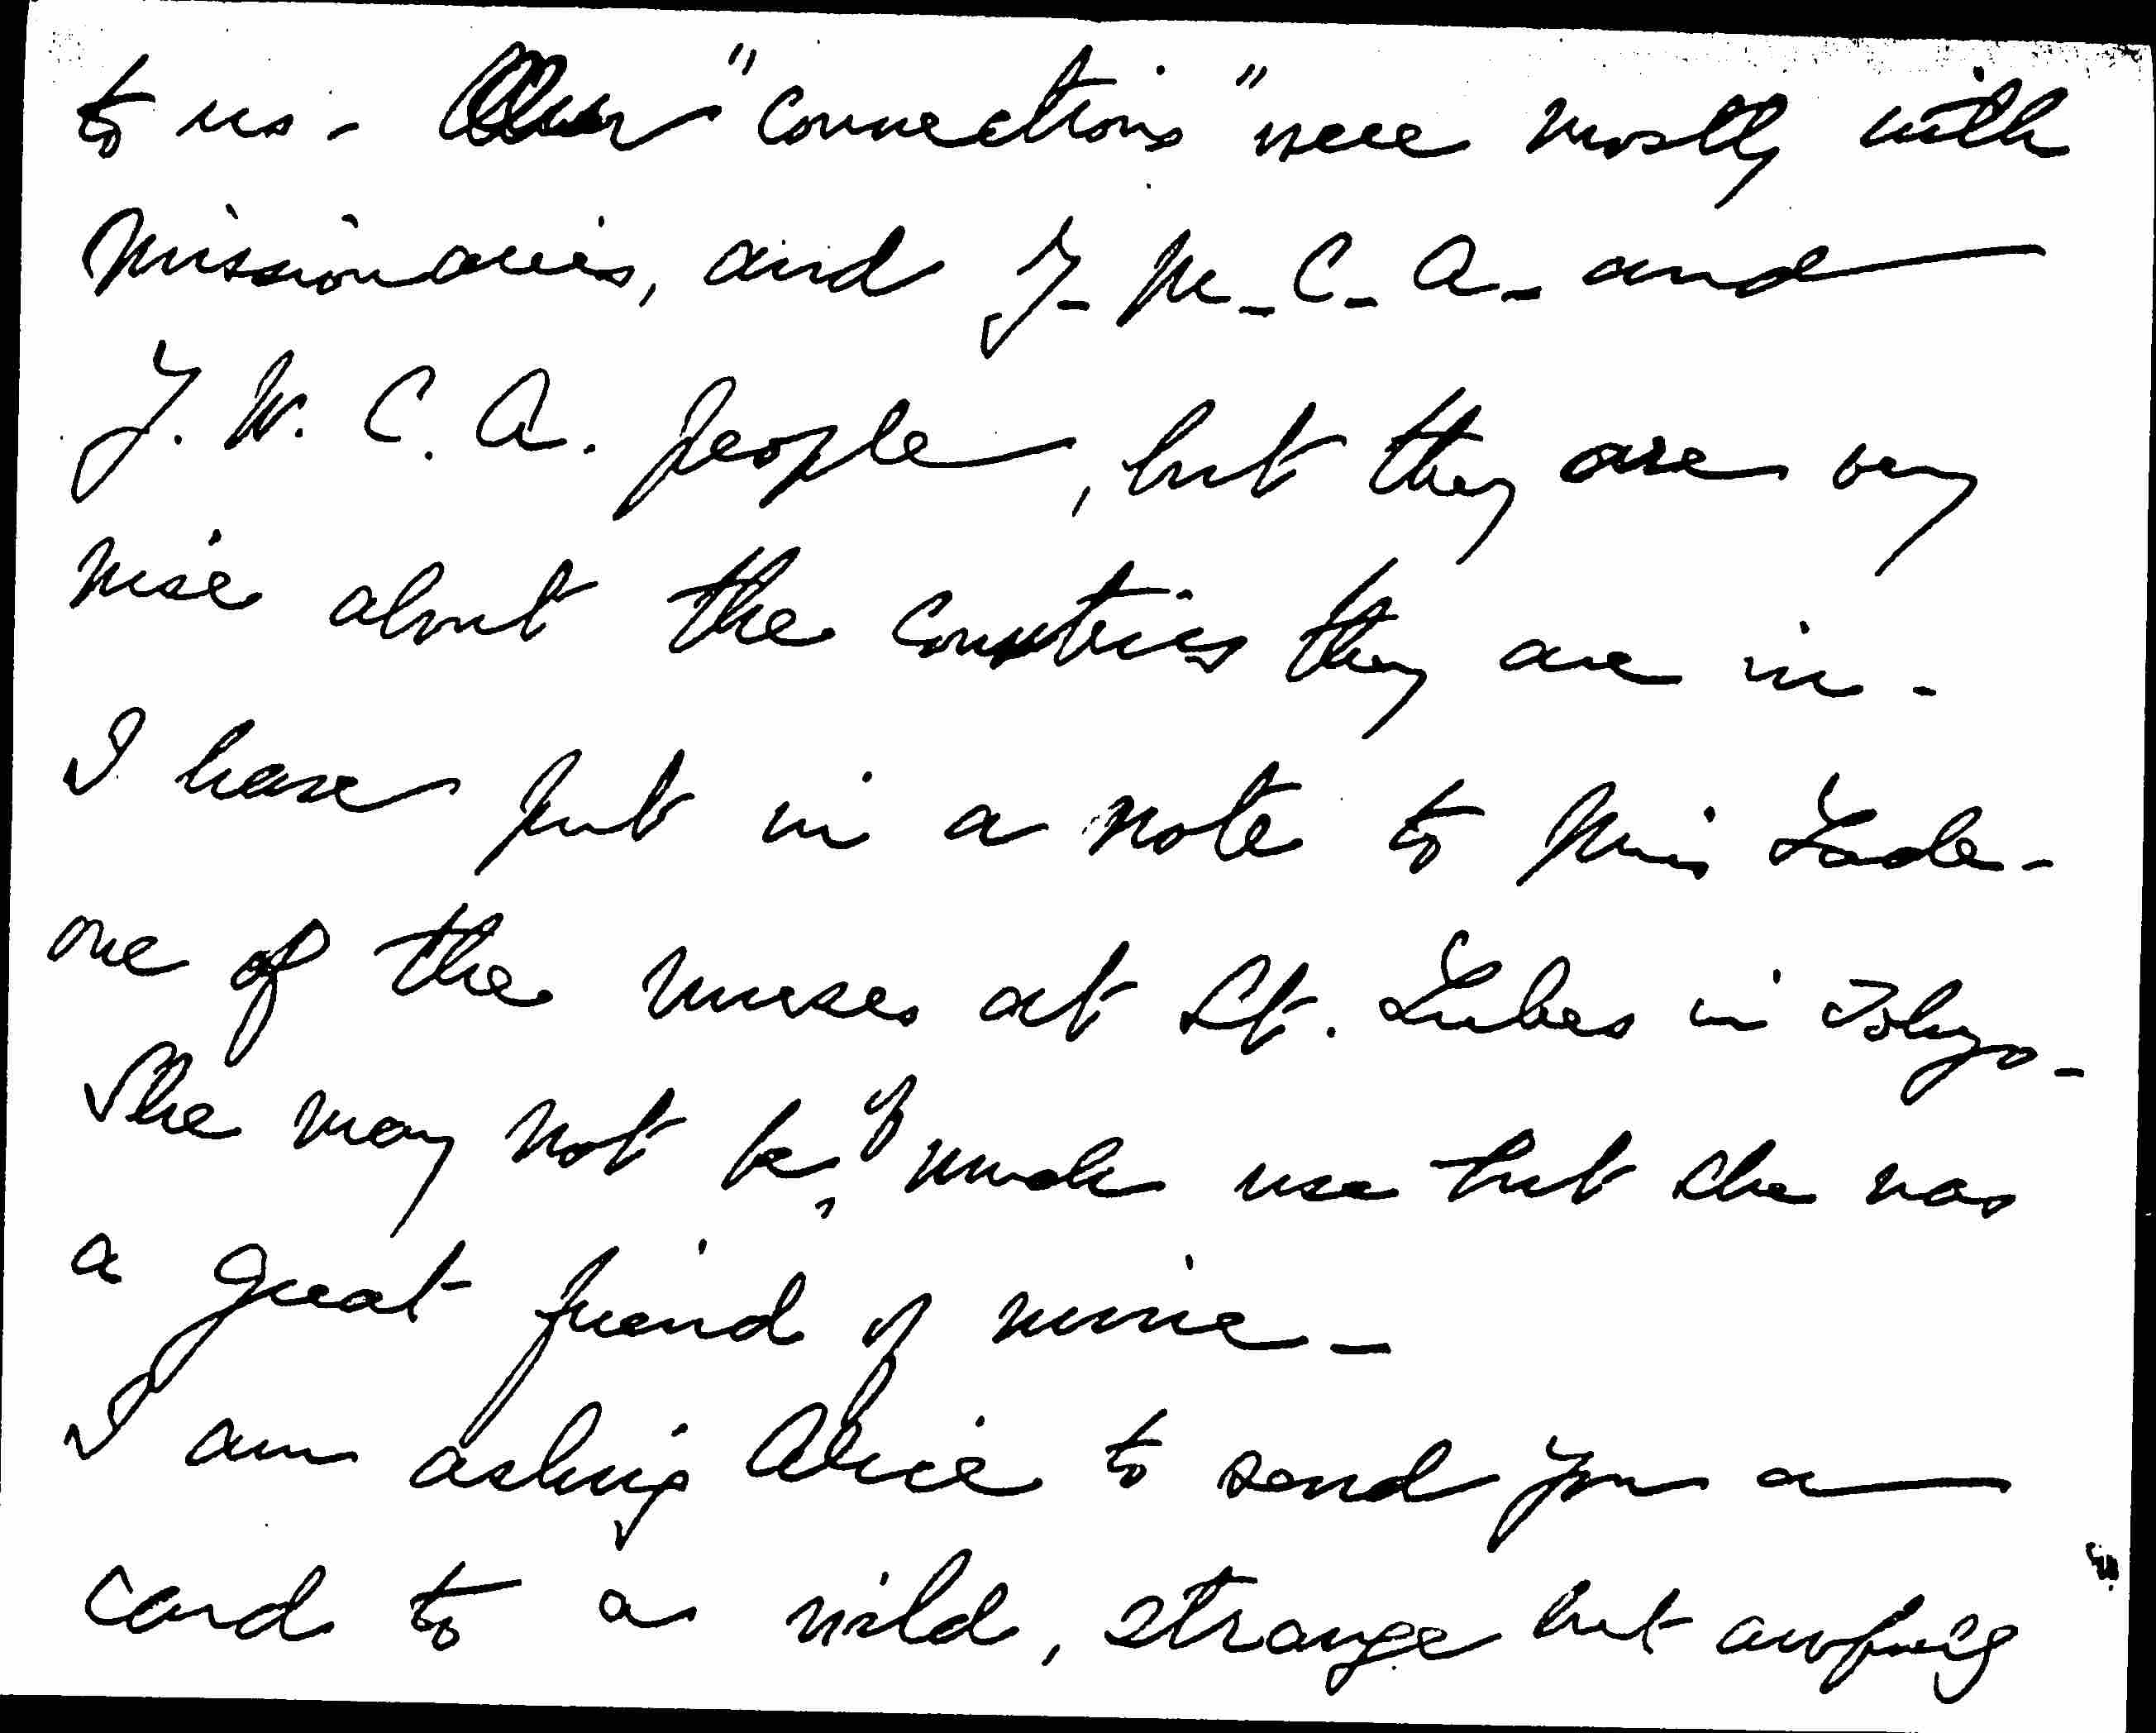 to us - Our "connections" were mostly with
missionaries, and Y- M- C- A- and
Y. W. C. A. people, but they are very
wise about the countries they are in -
I have put in a note to Miss Lade -
one of the nurses at St. Lukes in Tokyo -
She may not be, of much use but she was
a great friend of mine -
I am asking Alice to send you a
card to a wild, strange but amusing